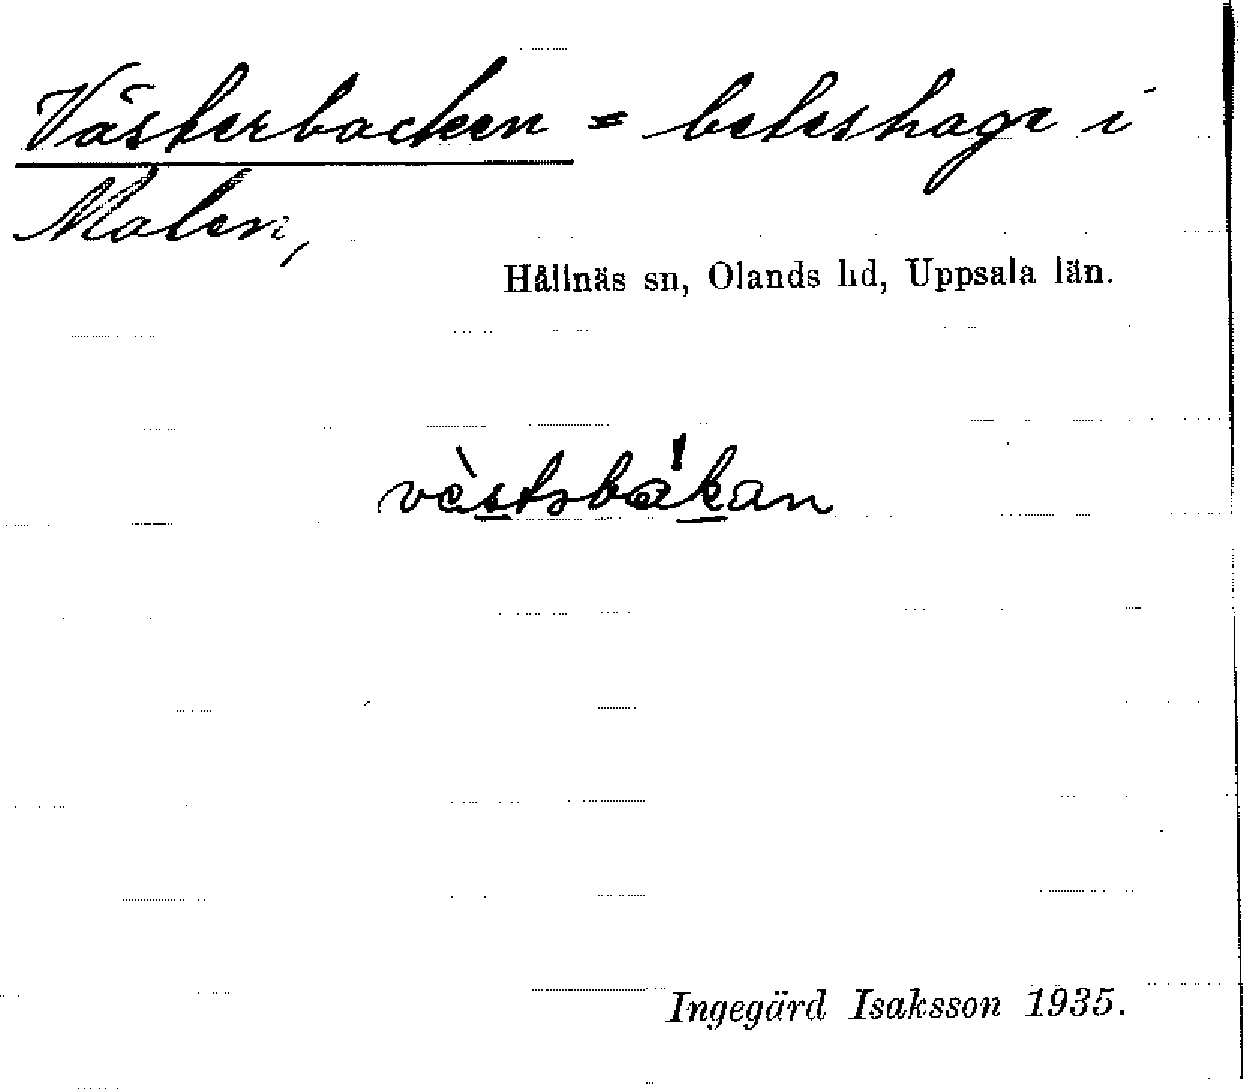 Västerbacken = beteshage i
Malen,
Hållnäs sn, Olands hd, Uppsala län.
Ingegärd Isaksson 1935.